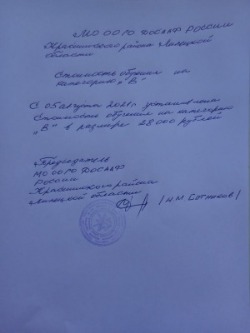 МО ООГО ДОСААФ РОССИИ
Краснинского района Липецкой
области
Стоимость обучения на
категорию "В"
С 05 августа 2021г. установлена
стоимость обучения на категорию
"В" в размере 28000 рублей
Председатель
МО ООГО ДОСААФ
РОССИИ
Краснинского района
Липецкой области